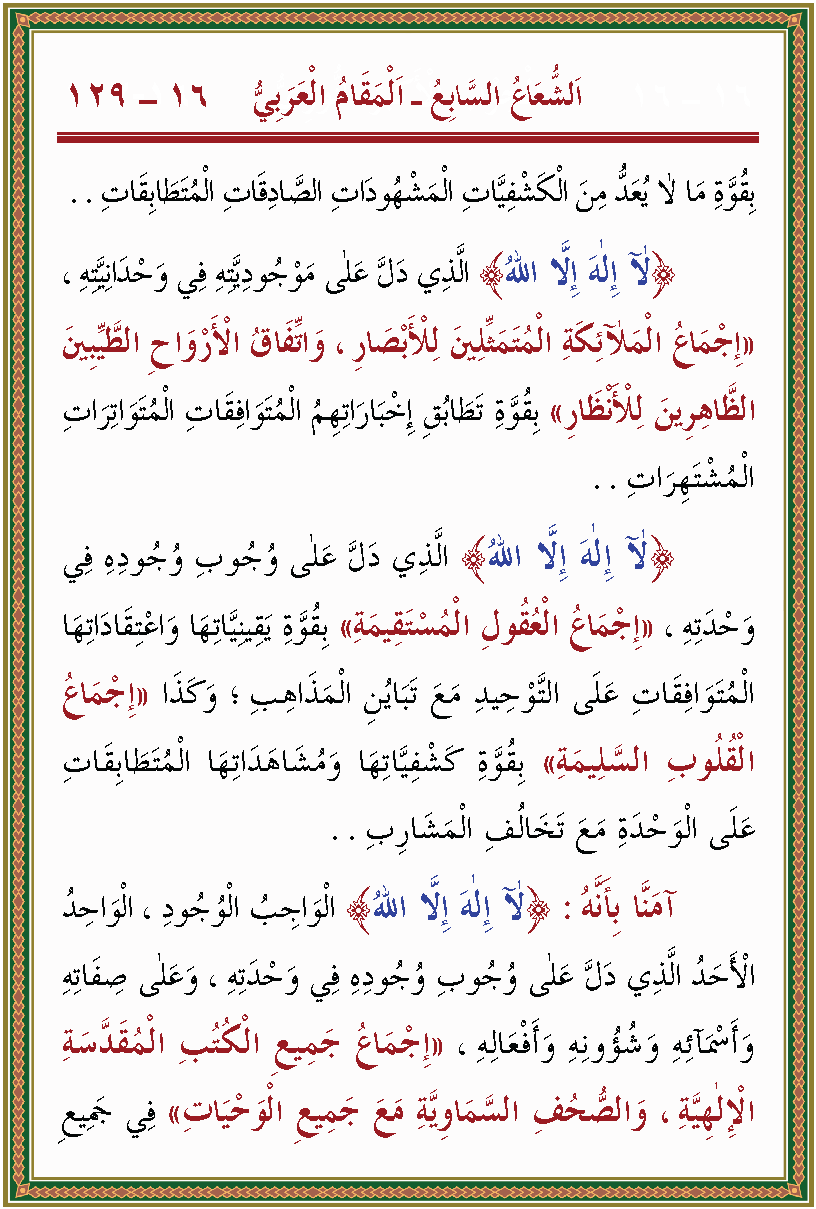 اَلشُّعَاعُ السَّابِعُ ـ اَلْمَقَامُ الْعَرَبِيُّ ١٦ – ١٢٩
بِقُوَّةِ مَا لَا يُعَدُّ مِنَ الْكَشْفِيَّاتِ الْمَشْهُودَاتِ الصَّادِقَاتِ الْمُتَطَابِقَاتِ . .
﴿لَآ إِلٰهَ إِلَّا اللهُ﴾ الَّذِي دَلَّ عَلٰى مَوْجُودِيَّتِهِ فِي وَحْدَانِيَّتِهِ ،
«إِجْمَاعُ الْمَلَآئِكَةِ الْمُتَمَثِّلِينَ لِلْأَبْصَارِ ، وَاتِّفَاقُ الْأَرْوَاحِ الطَّيِّبِينَ
الظَّاهِرِينَ لِلْأَنْظَارِ» بِقُوَّةِ تَطَابُقِ إِخْبَارَاتِهِمُ الْمُتَوَافِقَاتِ الْمُتَوَاتِرَاتِ
الْمُشْتَهِرَاتِ . .
﴿لَآ إِلٰهَ إِلَّا اللهُ﴾ الَّذِي دَلَّ عَلٰى وُجُوبِ وُجُودِهِ فِي
وَحْدَتِهِ ، «إِجْمَاعُ الْعُقُولِ الْمُسْتَقِيمَةِ» بِقُوَّةِ يَقِينِيَّاتِهَا وَاعْتِقَادَاتِهَا
الْمُتَوَافِقَاتِ عَلَى التَّوْحِيدِ مَعَ تَبَايُنِ الْمَذَاهِبِ ؛ وَكَذَا «إِجْمَاعُ
الْقُلُوبِ السَّلِيمَةِ» بِقُوَّةِ كَشْفِيَّاتِهَا وَمُشَاهَدَاتِهَا الْمُتَطَابِقَاتِ
عَلَى الْوَحْدَةِ مَعَ تَخَالُفِ الْمَشَارِبِ . .
آمَنَّا بِأَنَّهُ : ﴿لَآ إِلٰهَ إِلَّا اللهُ﴾ الْوَاجِبُ الْوُجُودِ ، الْوَاحِدُ
الْأَحَدُ الَّذِي دَلَّ عَلٰى وُجُوبِ وُجُودِهِ فِي وَحْدَتِهِ ، وَعَلٰى صِفَاتِهِ
وَأَسْمَآئِهِ وَشُؤُونِهِ وَأَفْعَالِهِ ، «إِجْمَاعُ جَمِيعِ الْكُتُبِ الْمُقَدَّسَةِ
الْإِلٰهِيَّةِ ، وَالصُّحُفِ السَّمَاوِيَّةِ مَعَ جَمِيعِ الْوَحْيَاتِ» فِي جَمِيعِ